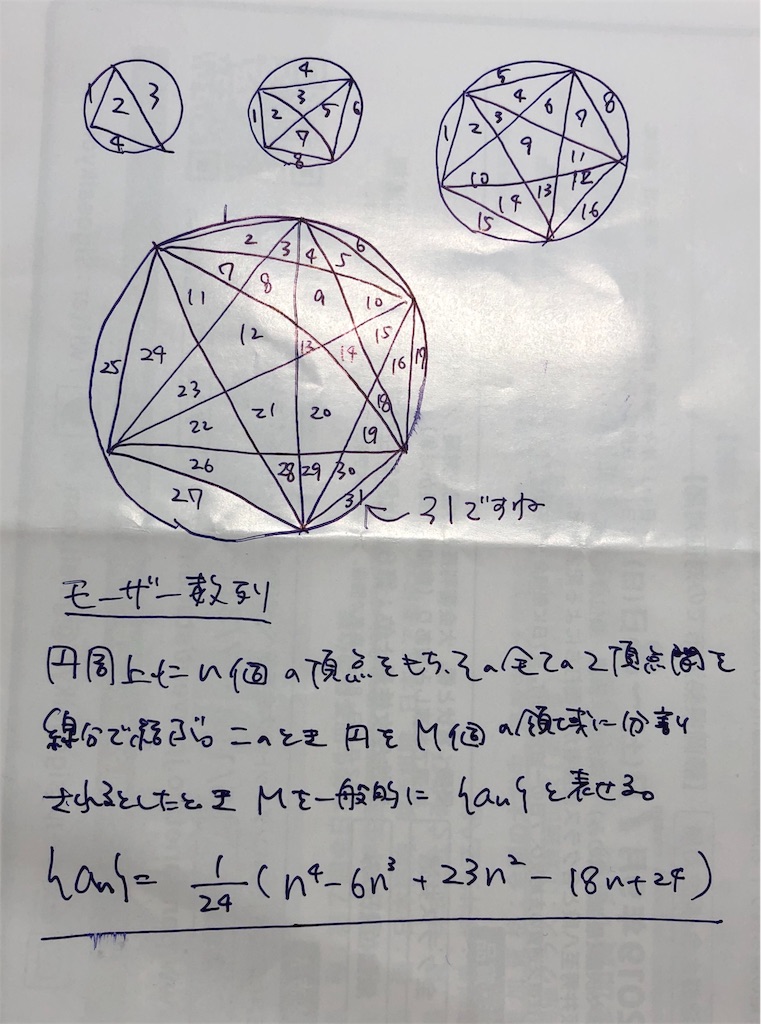 1 2 3 4
1 2 3 4 5 6 7 8
1 2 3 4 5 6 7 8 9 10 11 12 13 14 15 16
1 2 3 4 5 6
7 8 9 10
11 12 13 14 15 16 17
25 24 23 22 21 20 19 18
26 27 28 29 30 31
31ですね
モーザー数列
円周上にn個の頂点をもち、その全ての2頂点間を
線分で結ぶ。このとき円をM個の領域に分割
されるとしたとき Mを一般的に {an}と表せる。
{an}= 1/24 (n⁴-6n³+23n²-18n+24)